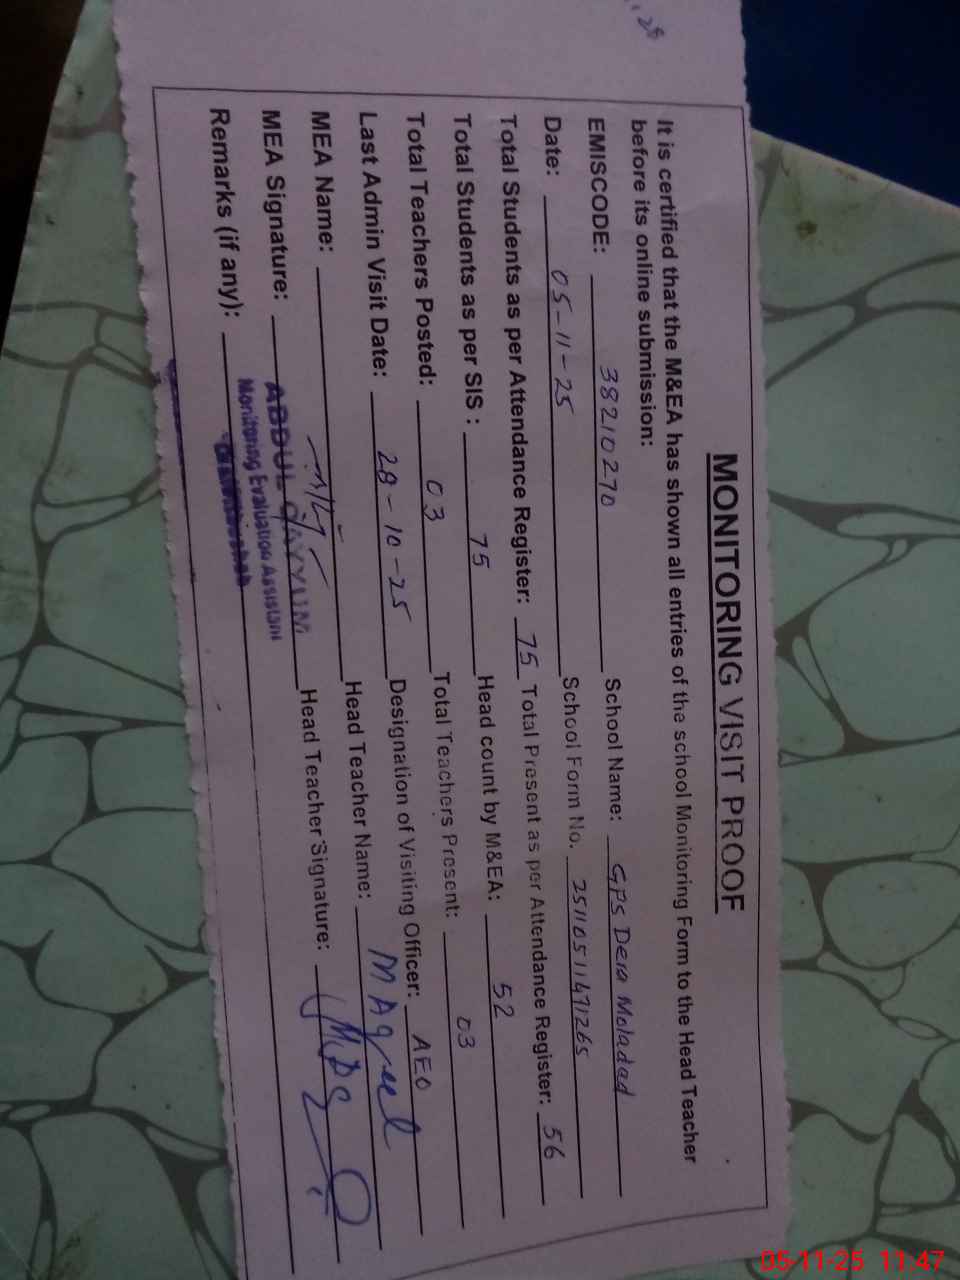 , 28
MONITORING VISIT PROOF
It is certified that the M&EA has shown all entries of the school Monitoring Form to the Head Teacher
before its online submission:
EMISCODE: 38210270 School Name: GPS Dera Moladad
Date: 05-11-25 School Form No. 251105114711265
Total Students as per Attendance Register: 75 Total Present as per Attendance Register: 56
Total Students as per SIS : 75 Head count by M&EA: 52
Total Teachers Posted: 03 Total Teachers Present: 03
Last Admin Visit Date: 28-10-25 Designation of Visiting Officer: AEO
MEA Name: Head Teacher Name: M Aqeel
MEA Signature: ABDUL QAYYUM Head Teacher Signature:
Monitoring Evaluation Assistant
Remarks (if any):
05-11-25 11:47